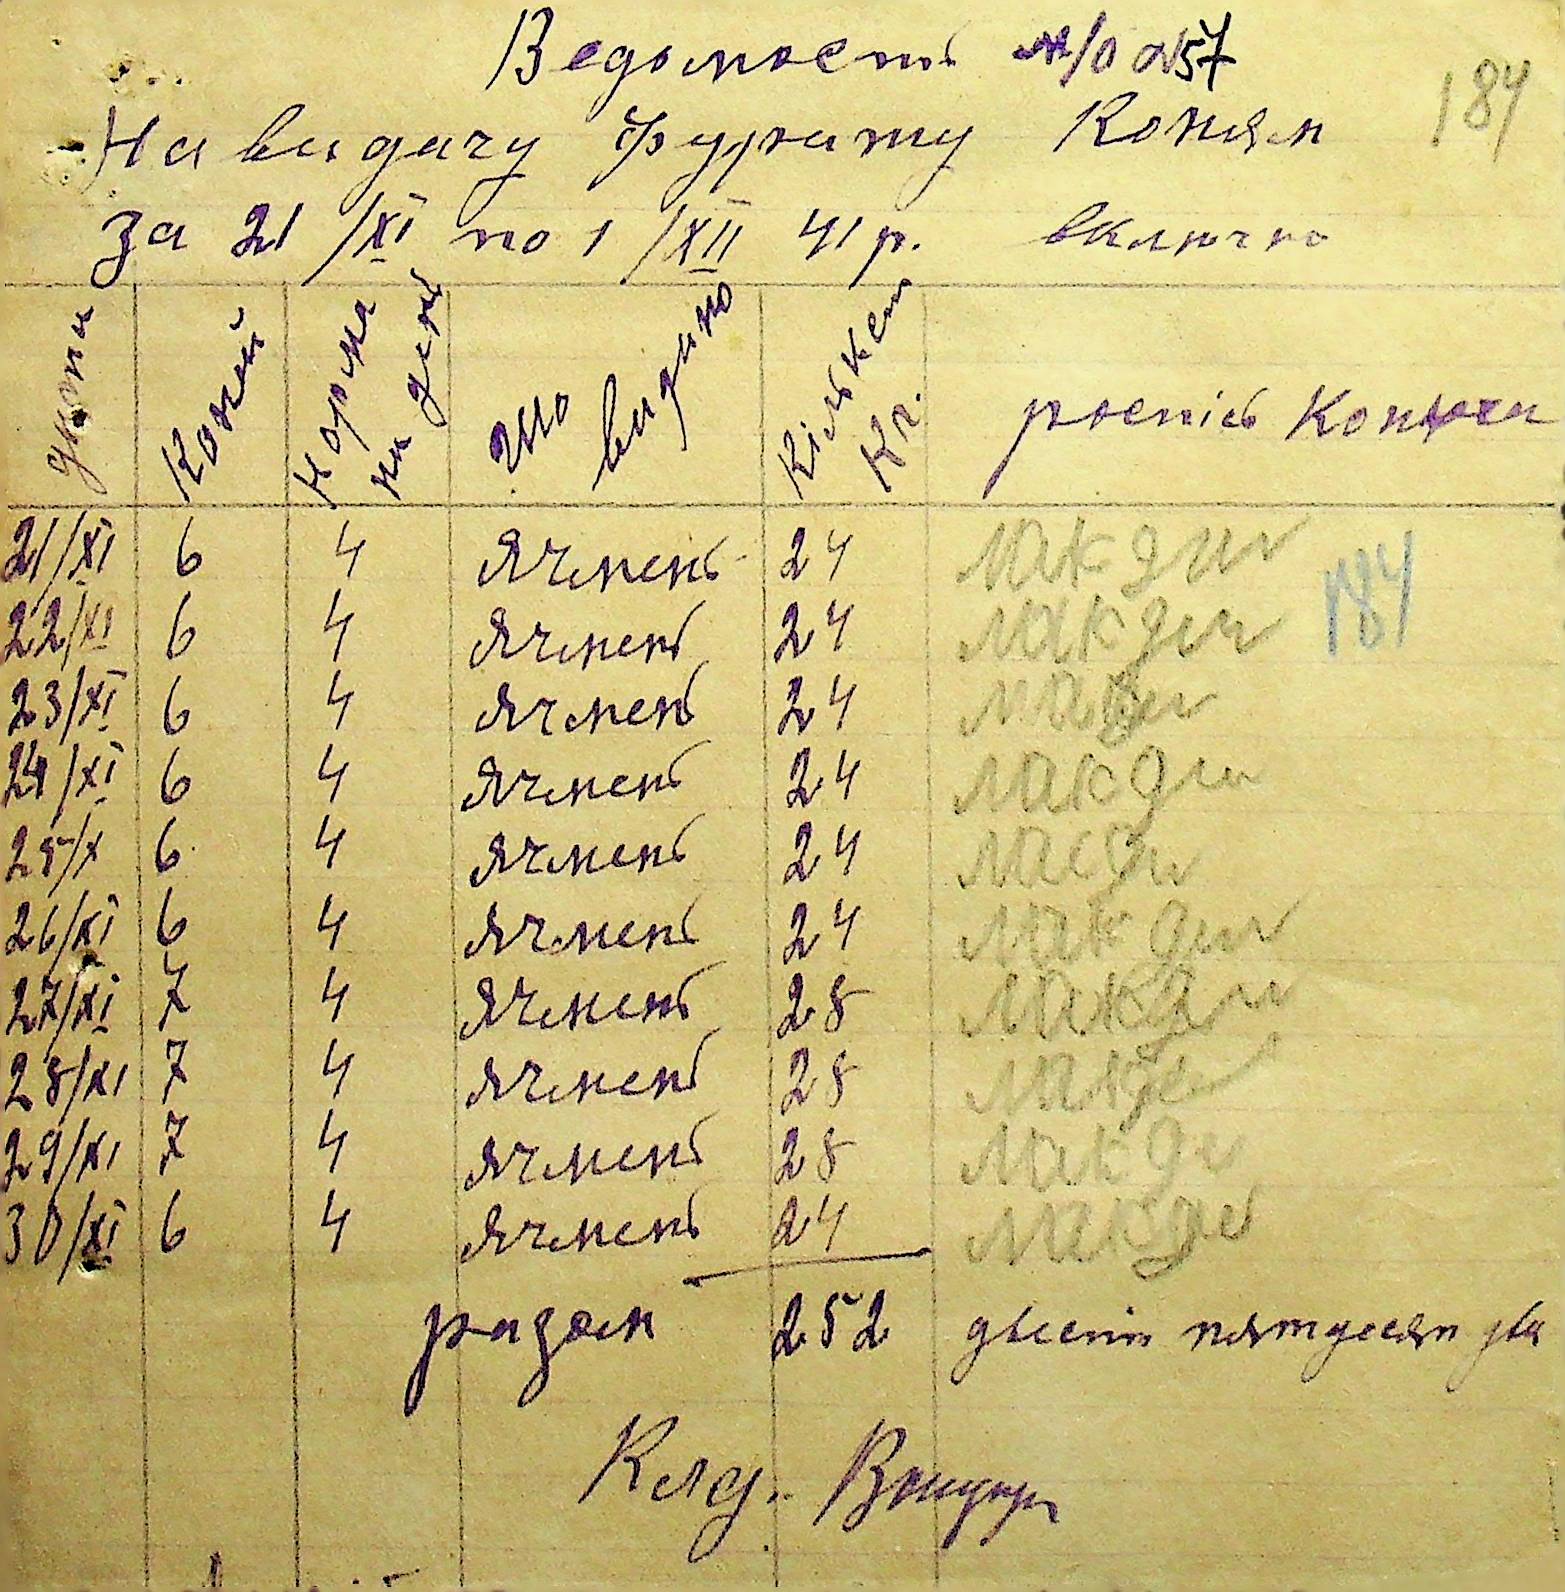 Ведомость м/о №57
184
На видачу Фуражу Коням
За 21/XI по 1/XII 41 р. включно
дати Коней Норма на день Що видано Кількст Кг. роспісь Конюха
21/XI 6 4 Ячмень 24 Макди
184
22/XI 6 4 Ячмень 24 Макди
23/XI 6 4 Ячмень 24
24/XI 6 4 Ячмень 24 Макди
25/X 6 4 Ячмень 24
26/XI 6 4 Ячмень 24 Макди
27/XI 7 4 Ячмень 28 Макди
28/XI 7 4 Ячмень 28
29/XI 7 4 Ячмень 28 Макди
30/XI 6 4 Ячмень 24 Макди
разом 252 двесті пятдесят два
Клад.